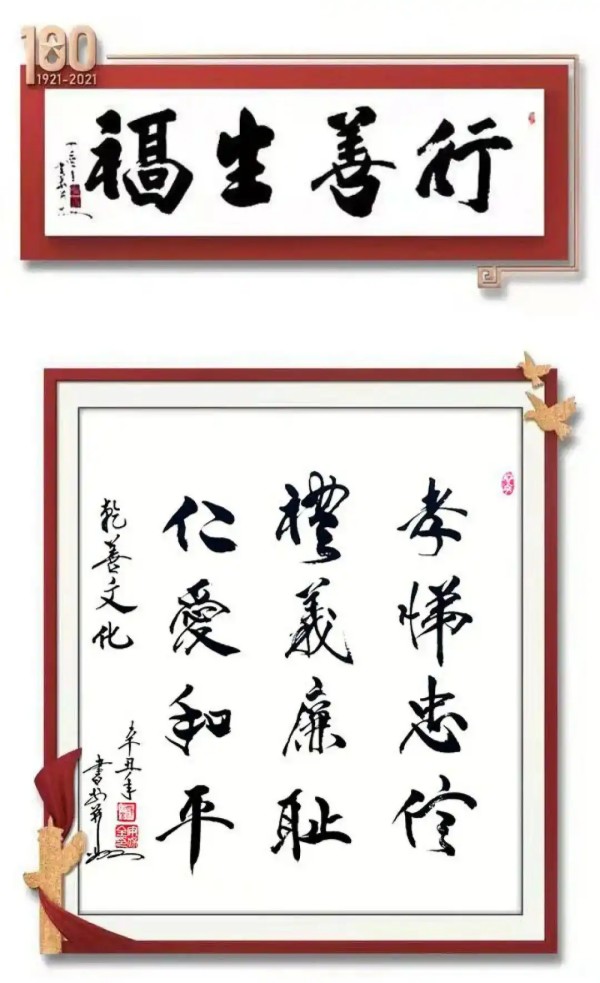 100
1921-2021
行善生福
孝悌忠信
禮義廉耻
仁愛和平
乾善文化
辛丑年